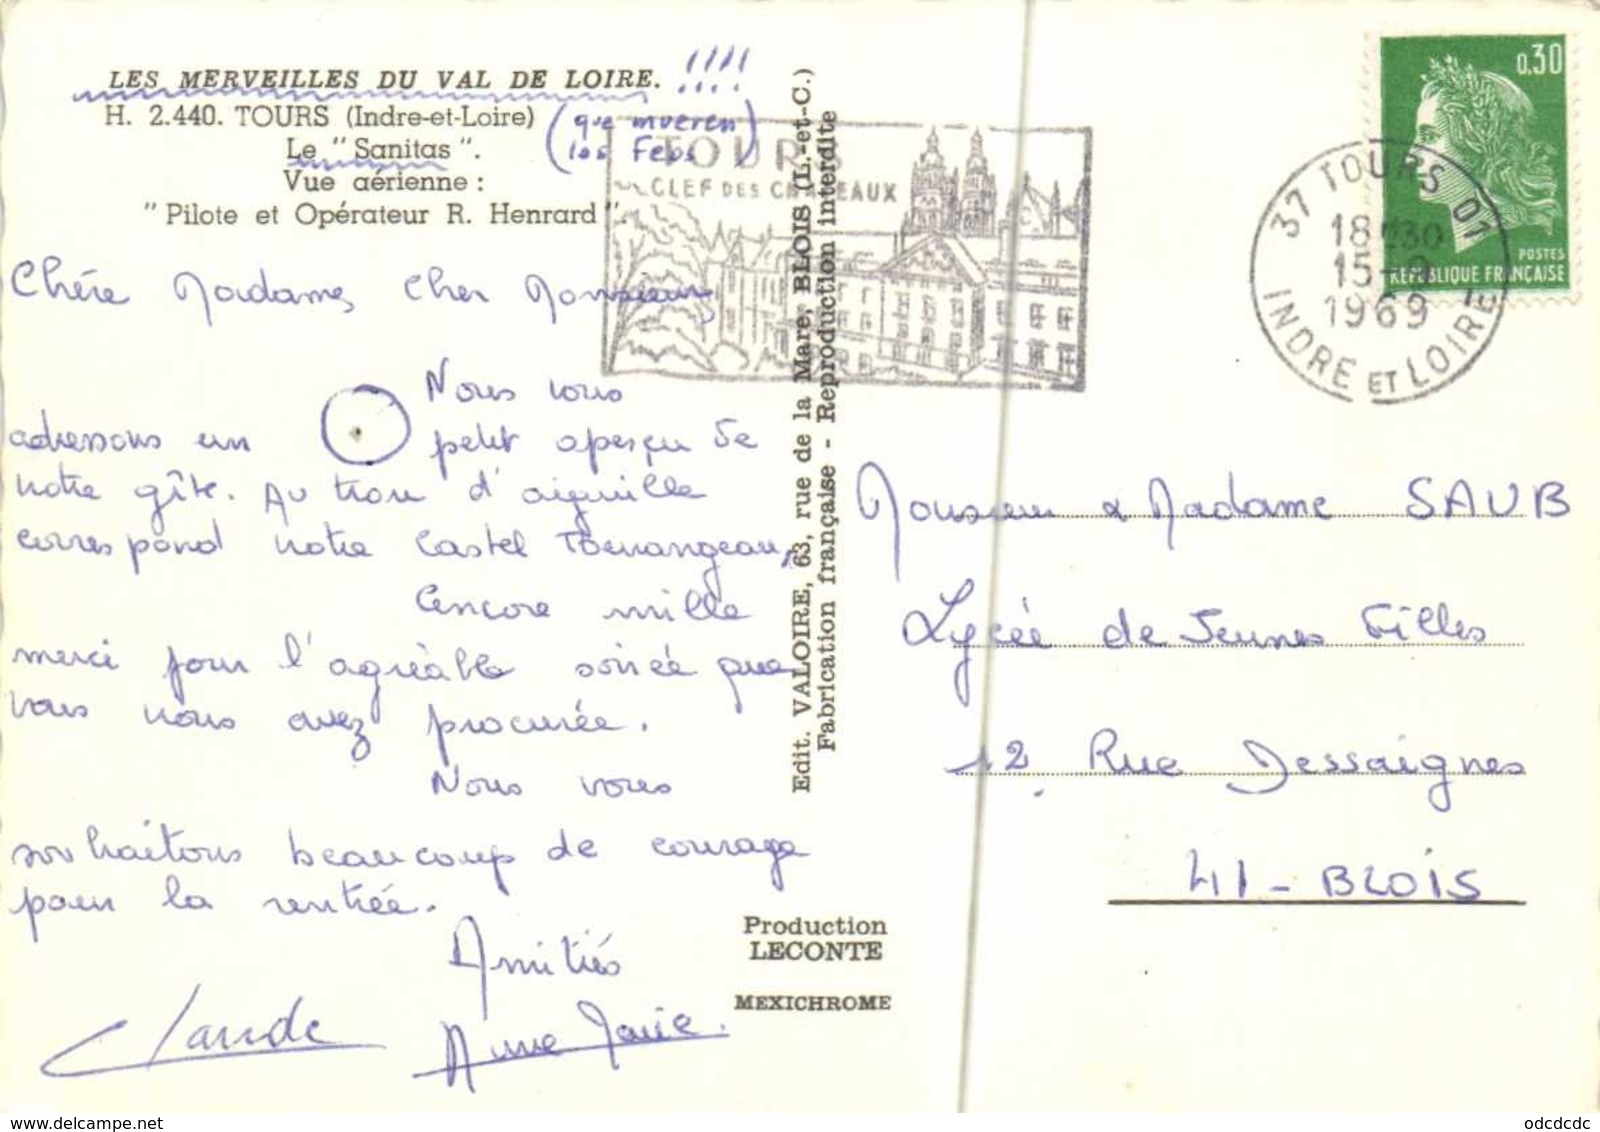 LES MERVEILLES DU VAL DE LOIRE. !!!!
H. 2.440. TOURS (Indre-et-Loire)
(que mueren
los Feos)
Le "Sanitas".
Vue aérienne :
"Pilote et Opérateur R. Henrard".
Chère Madame, Cher Monsieur,
Nous vous
adressons un petit aperçu de
notre gîte. Au trou d'aiguille
correspond notre Castel Tourangeau,
Encore mille
merci pour l'agréable soirée que
vous nous avez procurée.
Nous vous
souhaitons beaucoup de courage
pour la rentrée.
Amitiés
Claude Anne Marie.
TOURS
CLEF DES CHATEAUX
Edit. VALOIRE, 63, rue de la Mare, BLOIS (L.-et-C.)
Fabrication française - Reproduction interdite
Production
LECONTE
MEXICHROME
0,30
POSTES
REPUBLIQUE FRANÇAISE
37 TOURS 01
18H30
15-9
1969
INDRE ET LOIRE
Monsieur & Madame SAUB
Lycée de Jeunes Filles
12 Rue Dessaignes
41 - BLOIS
odcdcdc